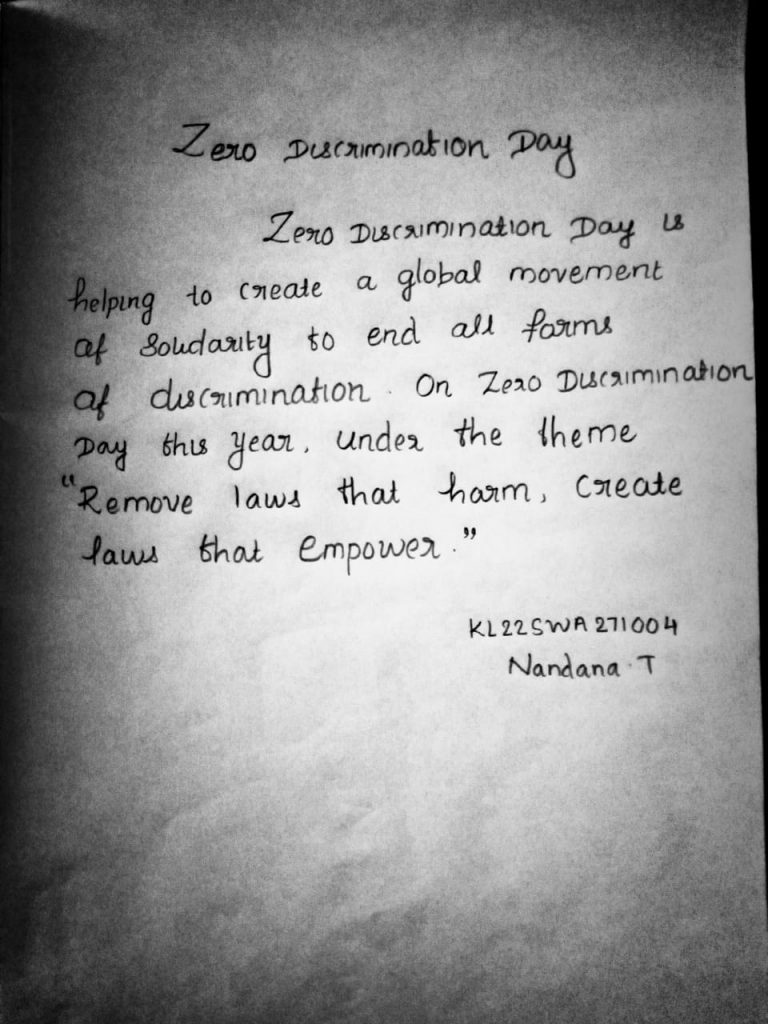 Zero Discrimination Day
Zero Discrimination Day is
helping to create a global movement
of solidarity to end all forms
of discrimination. On Zero Discrimination
Day this year, under the theme
"Remove laws that harm, create
laws that empower."
KL22SWA271004
Nandana T